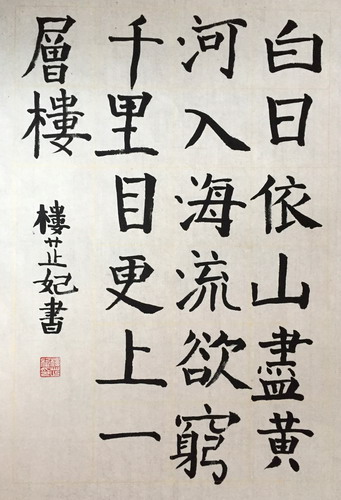 白日依山盡黄
河入海流欲窮
千里目更上一
層樓
樓芷妃書